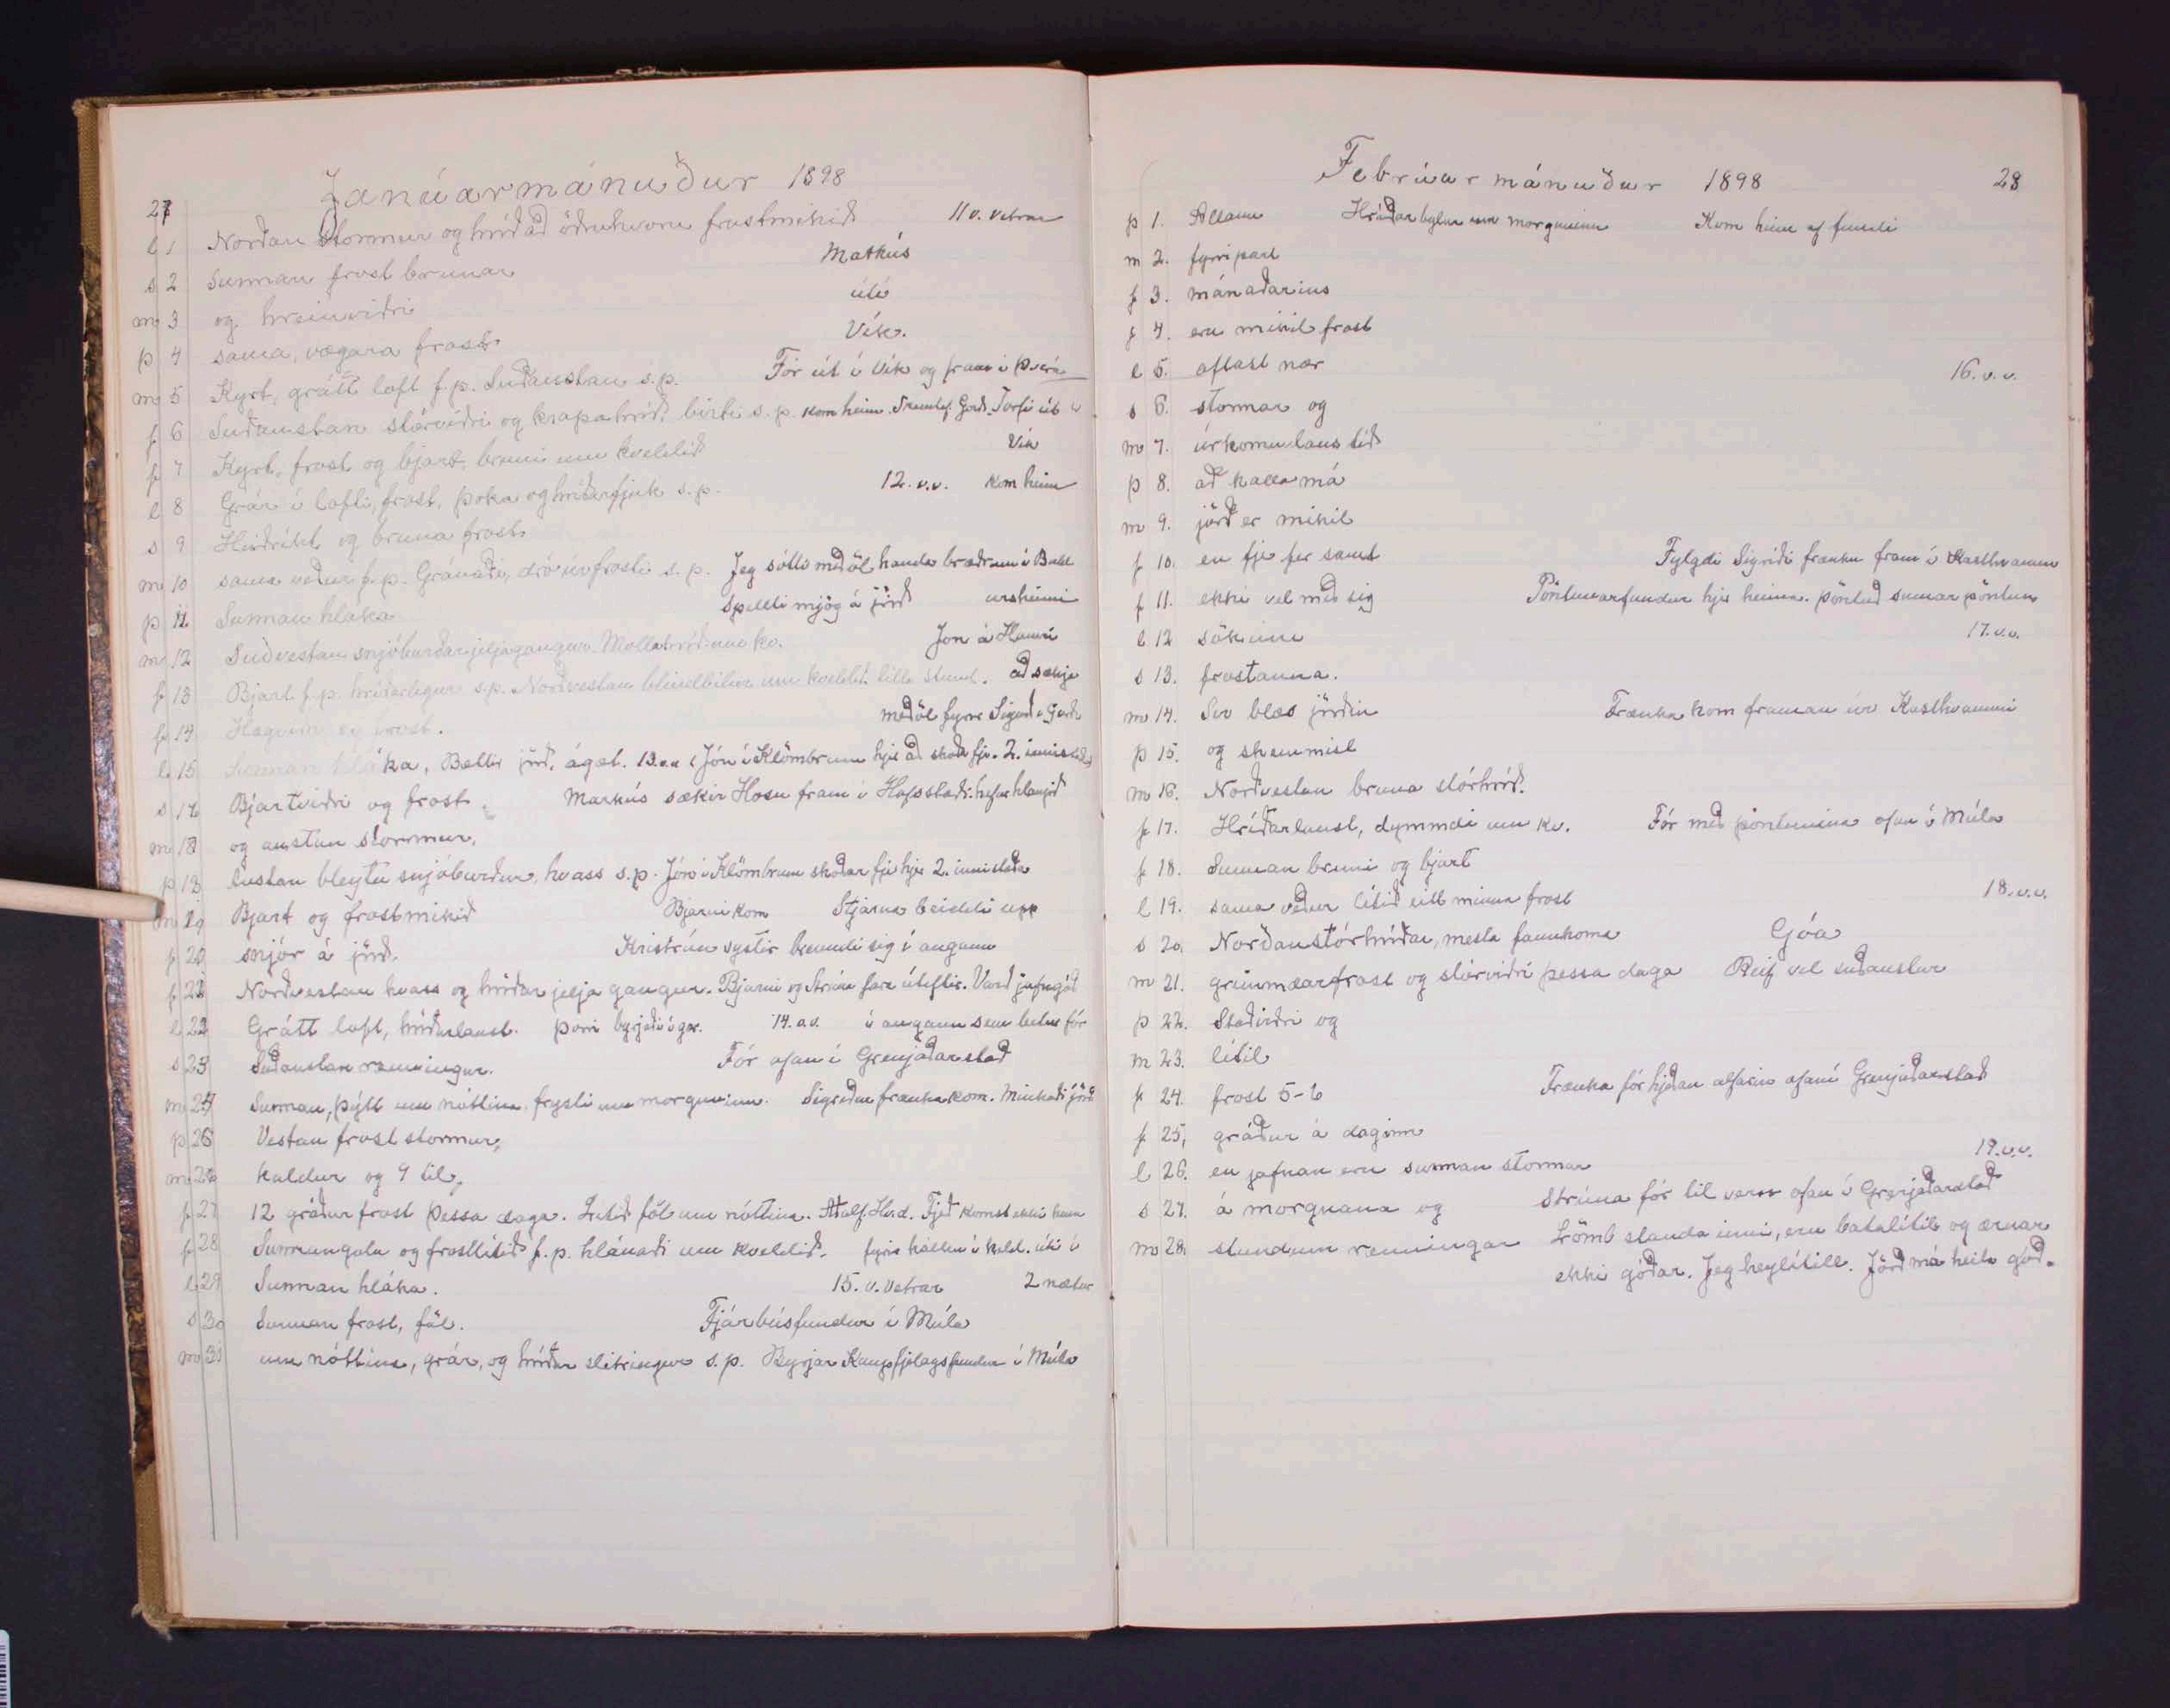 27
Janúarmánuður 1898
l 1 Norðan stormur og hríð að öðruhvoru frostmikið 11 v. vetrar
s 2 Sunnan frost brunar Markús
m 3 og hreinviðri úti
þ 4 sama, vægara frost Vík.
m 5 Kyrt, grátt loft f.p. Suðaustan s.p. Fór út í Vík og fram í Þverá
f 6 Suðaustan stórviðri og krapahríð, birti s.p. kom heim. Torfi út í
f 7 Kyrt, frost og bjart, bruni um kveldið Vík
l 8 Grár í lofti, frost, þoka og hríðarfjuk s.p. 12. v.v. kom heim
s 9 Heiðríkt og bruna frost
m 10 sama veður f.p. Gránaði, dró úr frosti s.p. Jeg sótti meðöl handa bræðrum í Bald
þ 11 Sunnan hláka Spillti mjög á jörð ursheimi
m 12 Suðvestan snjóburðar jeljagangur. Mollahríð um kv. Jón á Hamri
f 13 Bjart f.p. hríðarlegur s.p. Norðvestan blindbilur um kveldið litla stund. að sækja
f 14 Hægviðri og frost. meðöl fyrir Sigurð í Garði
l 15 Sunnan hláka, Bætti jörð, ágæt. 13. v.v. Jón í Klömbrum hjer að skoða fje. 2. innistöðu
s 16 Bjartviðri og frost. Markús sækir Hosu fram í Hofsstaði. hefur hlaupið
m 17 og austan stormur,
þ 18 Austan bleytu snjóburður, hvass s.p. Jón í Klömbrum skoðar fje hjer 2. innistöða
m 19 Bjart og frostmikið Bjarni kom Stjarna beiddi upp
f 20 snjór á jörð. Kristrún systir brenndi sig í augum
f 21 Norðvestan hvass og hríðar jelja gangur. Bjarni og Strúna fara úteftir. Varð jafngóð
l 22 Grátt loft, hríðarlaust. þorri byrjaði í gær. 14. v.v. í augum sem betur fór
s 23 Suðaustan renningur. Fór ofan í Grenjaðarstað
m 24 Sunnan, þýtt um nóttina, frysti um morguninn. Sigríður frænka kom. Minkaði jörð
þ 25 Vestan frost stormur,
m 26 kaldur og 9 til,
f 27 12 gráður frost þessa daga. Lítið föl um nóttina. Fjeð komst ekki heim
f 28 Sunnangola og frostlítið f.p. hlánaði um kveldið. fyrir hálku í kveld. úti í
l 29 Sunnan hláka. 15. v. vetrar 2 nætur
s 30 Sunnan frost, föl. Fjárbúsfundur í Múla
m 31 um nóttina, grár, og hríðar slitringur s.p. Byrjar Kaupfjelagsfundur í Múla
Febrúarmánuður 1898 28
þ 1. Allann Hríðarbylur um morguninn Kom heim af fundi
m 2. fyrripart
f 3. mánaðarins
f 4. eru mikil frost
l 5. oftast nær 16. v.v.
s 6. stormar og
m 7. úrkomulaus tíð
þ 8. að kalla má
m 9. jörð er mikil
f 10. en fje fer samt Fylgdi Sigríði frænku fram í Kasthvamm
f 11. ekki vel með sig Pöntunarfundur hjer heima. pöntuð sumar pöntun
l 12 sökum 17. v.v.
s 13. frostanna.
m 14. Svo blæs jörðin Frænka kom framan úr Kasthvammi
þ 15. og skemmist
m 16. Norðvestan bruna stórhríð.
f 17. Hríðarlaust, dymmdi um kv. Fór með pöntunina ofan í Múla
f 18. Sunnan bruni og bjart
l 19. sama veður lítið eitt minna frost 18. v.v.
s 20. Norðanstórhríðar, mesta fannkoma Góa
m 21. grimmdarfrost og stórviðri þessa daga Reif vel suðaustur
þ 22. Staðviðri og
m 23. lítil
f 24. frost 5-6 Frænka fór hjeðan alfarin ofaní Grenjaðarstað
f 25, gráður á daginn
l 26. en jafnan eru sunnan stormar 19. v.v.
s 27. á morgnana og Strúna fór til veru ofan í Grenjaðarstað
m 28. stundum renningar Lömb standa inni, eru batalítil og ærnar
ekki góðar. Jeg heylítill. Jörð má heita góð.